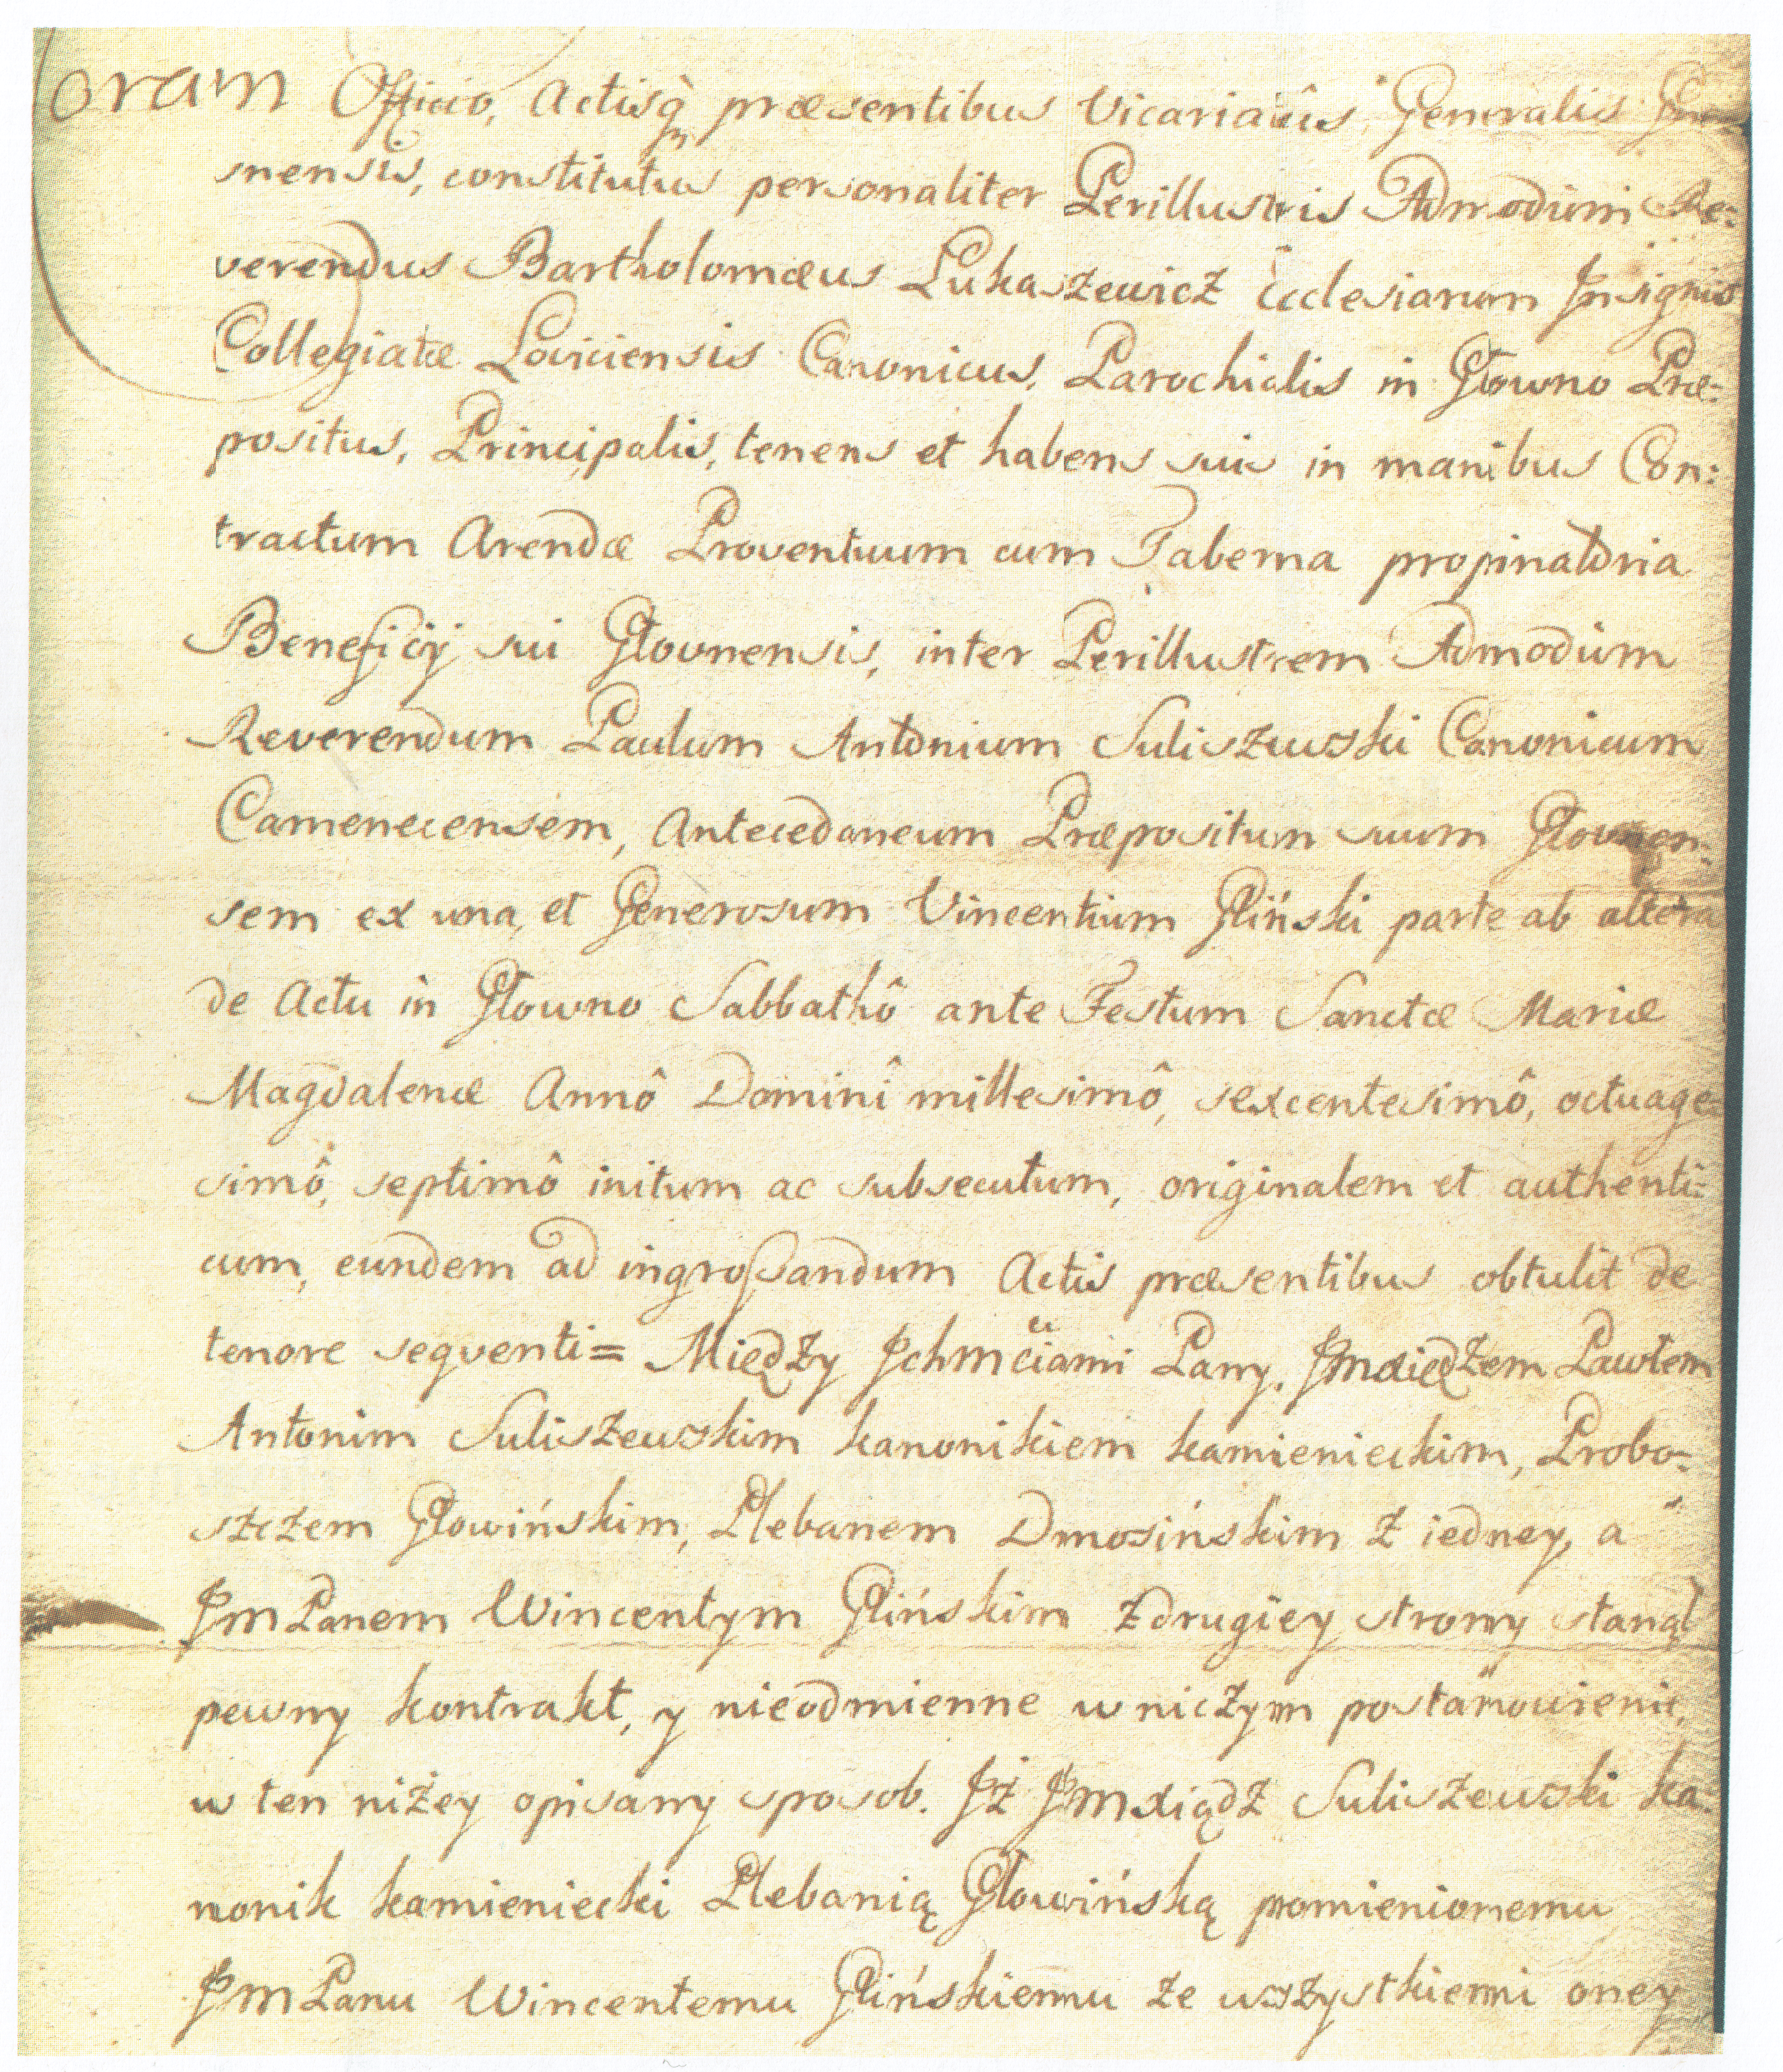 Coram Officio, Actisq̀ præsentibus Vicariatûs Generalis Gne-
snensis, constitutus personaliter Perillustris Admodum Re-
verendus Bartholomæus Lukaszewicz Ecclesiarum Insignis
Collegiatæ Loviciensis Canonicus, Parochialis in Głowno Præ-
positus, Principalis, tenens et habens suis in manibus Con-
tractum Arendæ Proventuum cum Taberna propinatoria
Beneficij sui Głovnensis, inter Perillustrem Admodum
Reverendum Paulum Antonium Suliszewski Canonicum
Camenecensem, Antecedaneum Præpositum suum Głovnen-
sem ex una, et Generosum Vincentium Gliński parte ab altera
de Actu in Głowno Sabbathô ante Festum Sanctæ Mariæ
Magdalenæ Annô Domini millesimô, sexcentesimô, octuage-
simô, septimô initum ac subsecutum, originalem et authenti-
cum, eundem ad ingroſsandum Actis præsentibus obtulit de
tenore seqventi= Między Ichmciami Pany, Jmxiędzem Pawłem
Antonim Suliszewskim kanonikiem kamienieckim, Probo-
szczem Głowińskim, Plebanem Dmosińskim z iedney, a
JmPanem Wincentym Glińskim z drugiey strony stanął
pewny kontrakt, y nieodmienne w niczym postanowienie,
w ten niżey opisany sposob. Iż Jmxiądz Suliszewski ka-
nonik kamieniecki Plebanią Głowińską pomienionemu
JmPanu Wincentemu Glińskiemu ze wszystkiemi oney